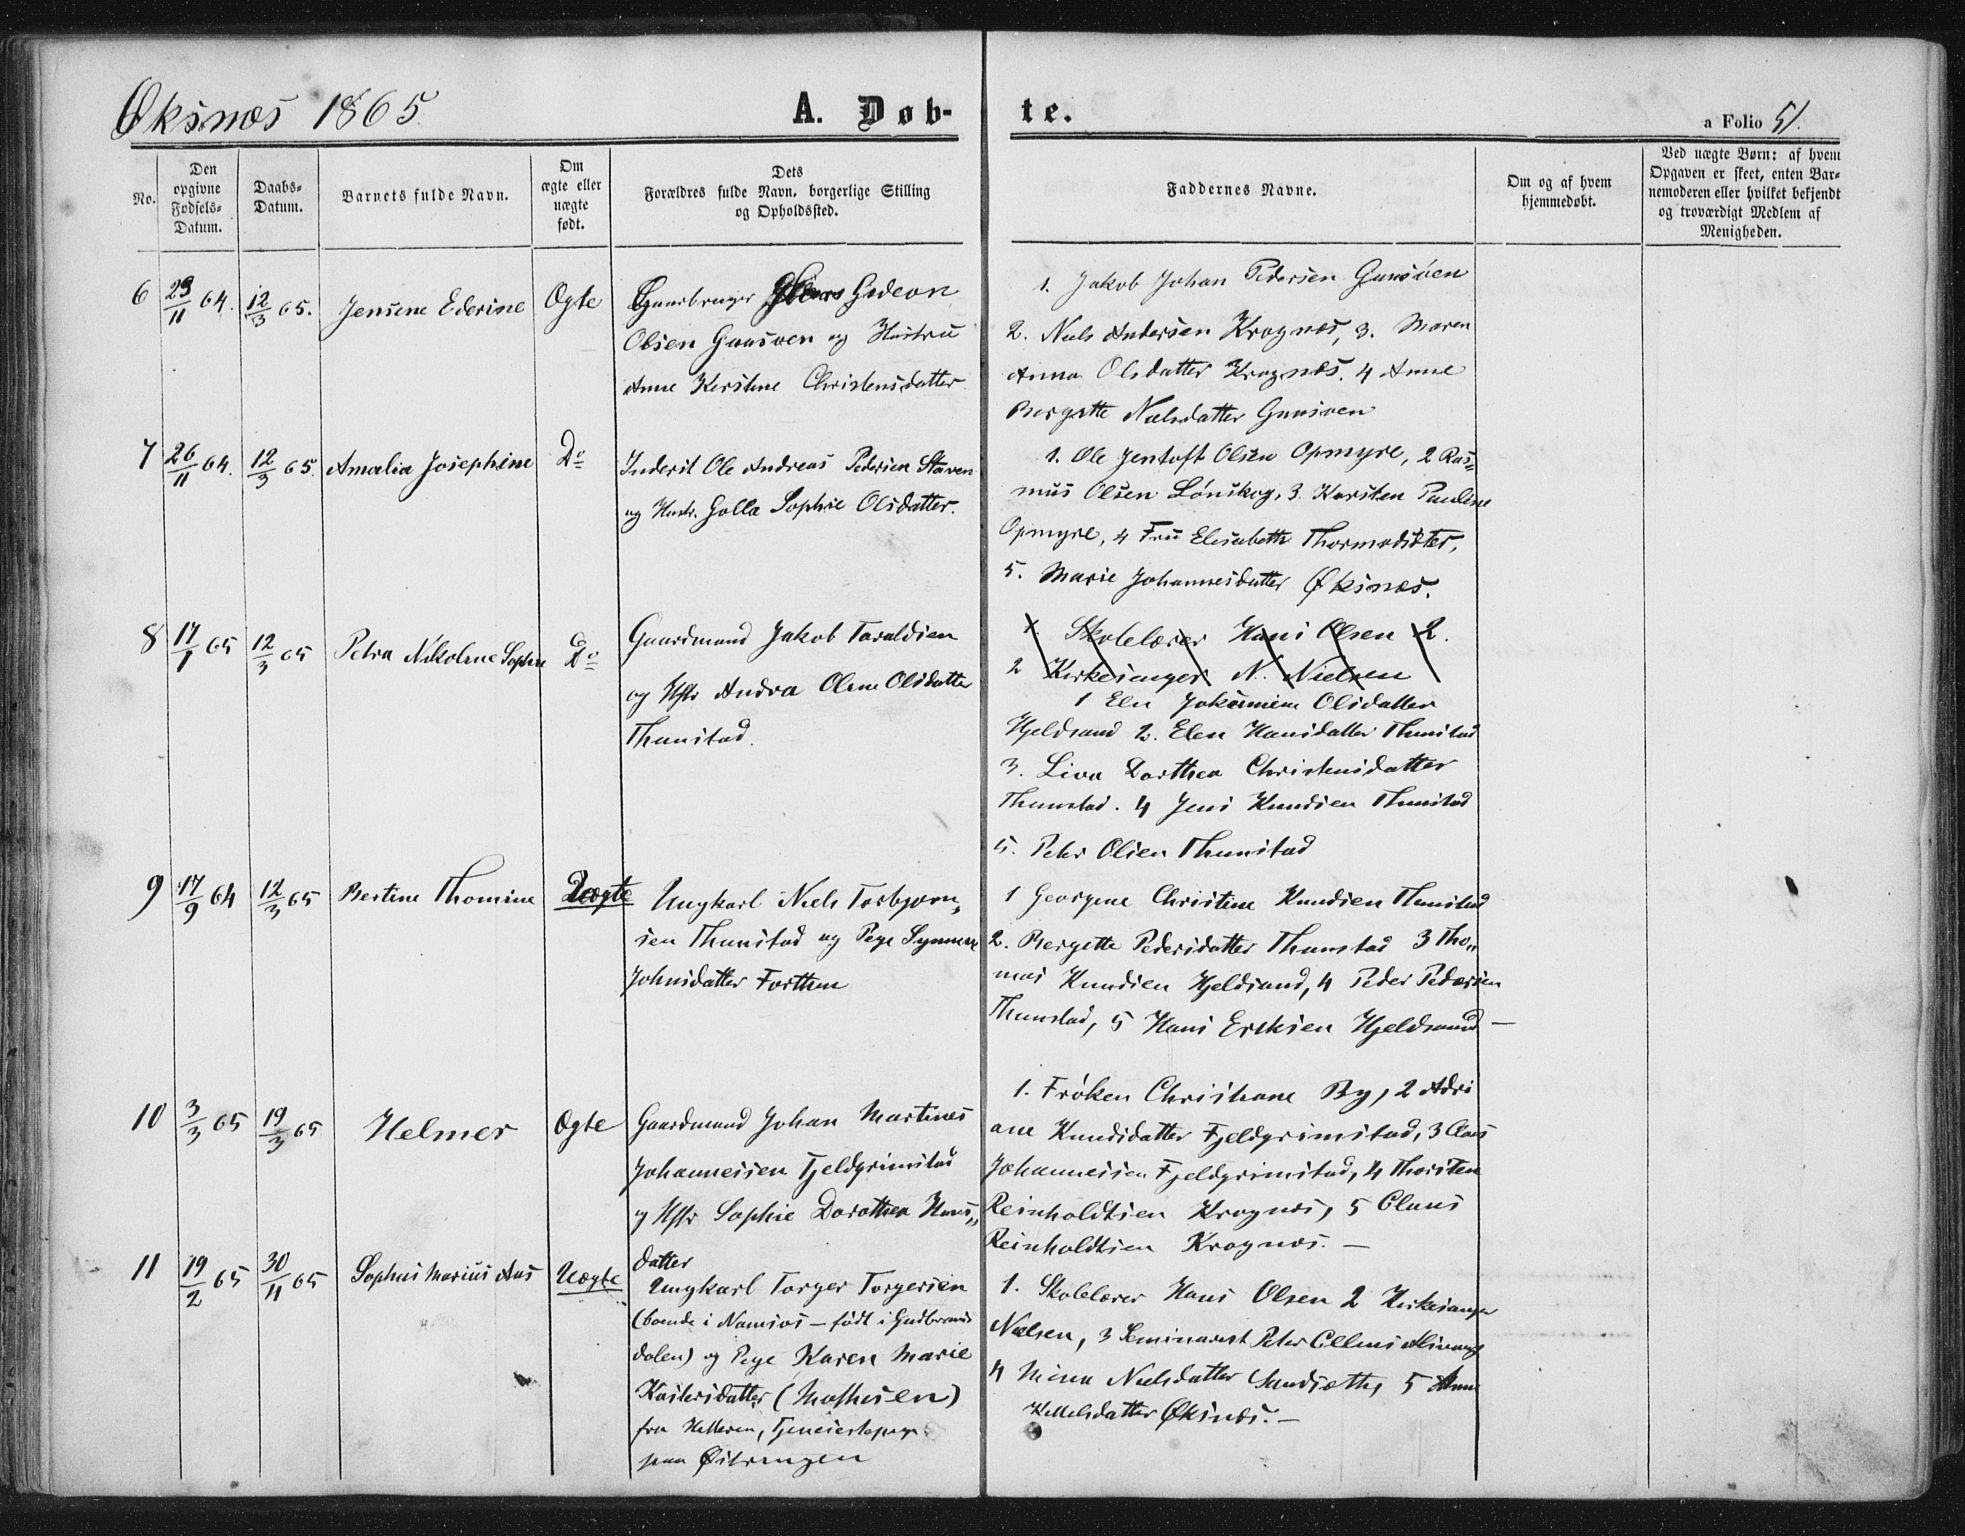 Øksnæs 1865
A. Døb-
te.
a Folio 51.
No.
Den
opgivne
Fødsels-
Datum.
Daabs-
Datum.
Barnets fulde Navn.
Om
ægte eller
uægte
født.
Dets
Forældres fulde Navn, borgerlige Stilling
og Opholdssted.
Faddernes Navne.
Om og af hvem
hjemmedøbt.
Ved uægte Børn: af hvem
Opgaven er skeet, enten Bar-
nemoderen eller hvilket bekjendt
og troværdigt Medlem af
Menigheden.
6 23/11 64. 12/3 65. Jensine Ederine Ægte
Gaardbruger Gedeon
Olsen Gaasøen og Hustru
Anne Kirstine Christensdatter
1. Jakob Johan Pedersen Gaasøen
2. Niels Andersen Kragnæs, 3. Maren
Anna Olsdatter Kragnæs. 4 Anne
Bergitte Nielsdatter Gaasøen
7 26/11 64. 12/3 65. Amalia Josephine Do
Inderst Ole Andreas Pedersen Staven
og Hustr. Golla Sophie Olsdatter.
1. Ole Jentoft Olsen Opmyre, 2 Ras=
mus Olsen Lønskog, 3. Karsten Pauline
Opmyre, 4 Fru Elisabeth Thormodsäter,
5. Marie Johannesdatter Øksnæs.
8 17/1 65 12/3 65 Petra Nikoline Sophie Do
Gaardmand Jakob Taraldsen
og Hstr Andrea Oline Olsdatter
Thunstad.
1. Skolelærer Hans Olsen 2.
2 Kirkesanger N. Nielsen
1 Elen Jakomine Olsdatter
Hjeldsand 2. Elen Hansdatter Thunstad
3. Liva Dorthea Christensdatter
Thunstad. 4 Jens Knudsen Thunstad
5. Peter Olsen Thunstad
9 17/9 64 12/3 65 Bertine Thomine Uægte
Ungkarl Niels Torbjørn„
sen Thunstad og Pige Synnere
Johnsdatter Forthun
1 Georgine Christine Knudsen Thunstad
2. Bergitte Pedersdatter Thunstad 3 Tho„
mas Knudsen Hjeldsand, 4 Peder Pedersen
Thunstad, 5 Hans Eriksen Hjeldsand —
10 3/3 65 19/3 65 Helmer Ægte
Gaardmand Johan Martinus
Johannessen Fjeldgrimstad
og Hstr Sophie Dorothea Hans„
datter
1. Frøken Christiane By, 2 Adri
ane Knudsdatter Fjeldgrimstad, 3 Claus
Johannessen Fjeldgrimstad, 4 Thorsten
Reinholdtsen Kragnæs, 5 Claus
Reinholdtsen Kragnæs. —
11 19/2 65 30/4 65 Sophus Marius Aas Uægte
Ungkarl Torger Torgersen
(boende i Namsos — født i Gudbrands
dalen) og Pige Karen Marie
Kastersdatter (Mathisen)
fra Helleren, Tjenestepige
paa Østvaagen
1. Skolelærer Hans Olsen 2 Kirkesanger
Nielsen, 3 Seminarist Peter Ellens
4 Mina Nielsdatter Sandsæth, 5 Anne
Kittelsdatter Øksnæs. —